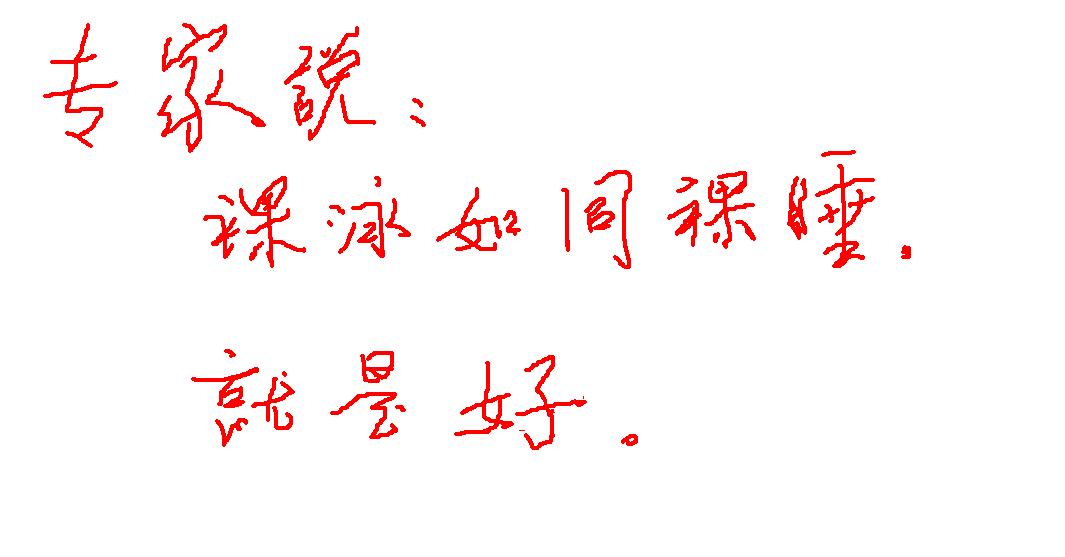 专家説：
裸泳如同裸睡.
就是好。